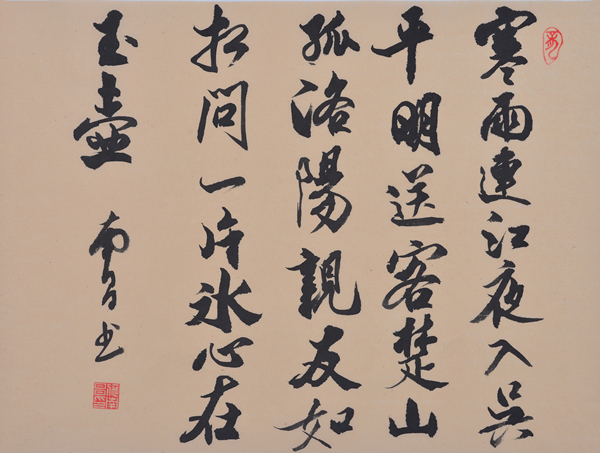 寒雨連江夜入吳
平明送客楚山
孤洛陽親友如
相問一片冰心在
玉壺
南昌书